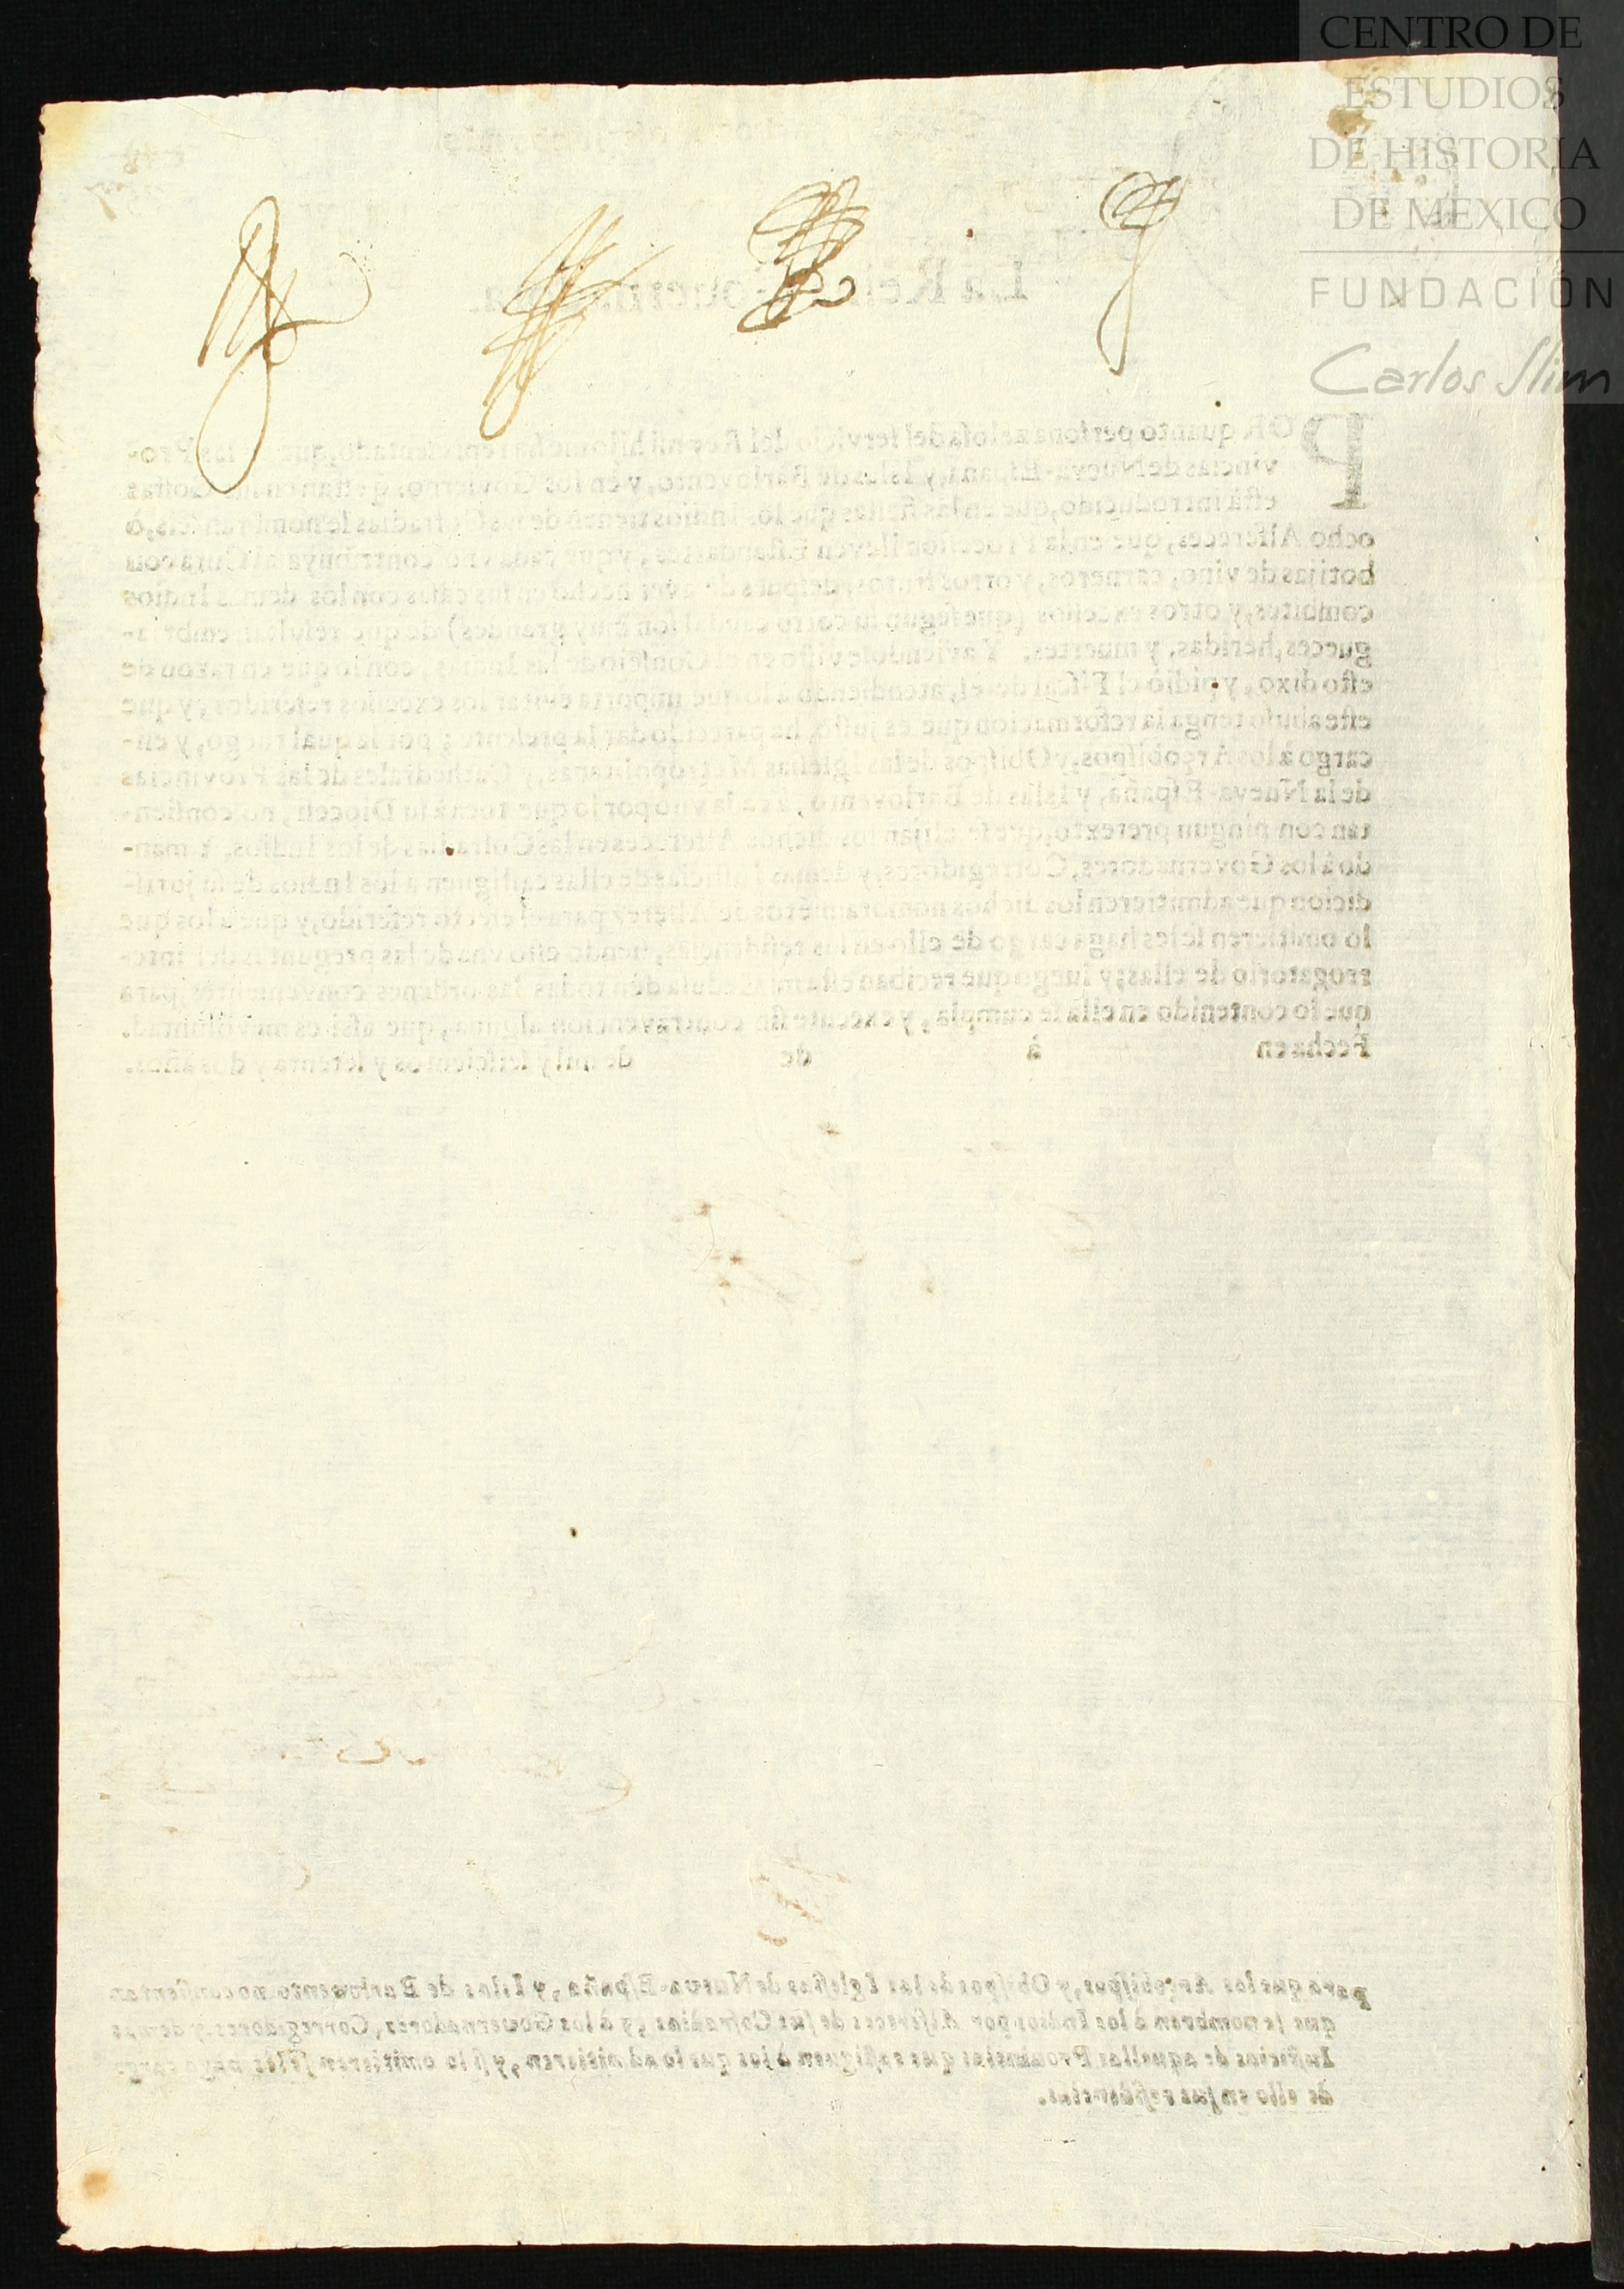 CENTRO DE
ESTUDIOS
DE HISTORIA
DE MEXICO
FUNDACIÓN
Carlos Slim
La Reina Gouernadora.
POR quanto persona zelosa del servicio del Rey mi hijo me ha representado, que las Pro-
vincias de Nueva-España, y Islas de Barlovento, y en los Govierno, q estàn en sus Costas
està introducido, que en las fiestas que los Indios tienen de sus Cofradias se nombran seis, ò
ocho Alfereces, que en la Procession lleven Estandartes, y que cada vno contribuya al Cura con
botijas de vino, carneros, y otros frutos, despues de aver hecho en sus casas con los demàs Indios
combites, y otros excessos (que segun su corto caudal son muy grandes) de que resultan embria-
gueces, heridas, y muertes. Y aviendose visto en el Consejo de las Indias, con lo que en razon de
esto dixo, y pidiò el Fiscal de èl, atendiendo à lo que importa evitar los excessos referidos, y que
este abuso tenga la reformacion que es justo, ha parecido dar la presente; por la qual ruego, y en-
cargo à los Arçobispos, y Obispos de las Iglesias Metropolitanas, y Cathedrales de las Provincias
de la Nueva-España, y Islas de Barlovento, à cada vno por lo que toca à su Diocesi, no consien-
tan con ningun pretexto, que se elijan los dichos Alfereces en las Cofradias de los Indios. Y man-
do à los Governadores, Corregidores, y demàs Iusticias de ellas castiguen à los Indios de su juris-
dicion que admitieren los dichos nombramiẽtos de Alferez para el efecto referido, y que à los que
lo omitieren se les haga cargo de ello en sus residencias, siendo esto vna de las preguntas del inte-
rrogatorio de ellas; y luego que reciban esta mi cedula dèn todas las ordenes convenientes, para
que lo contenido en ella se cumpla, y execute sin contravencion alguna, que assi es mi voluntad.
Fecha en à de de mil y seiscientos y setenta y dos años.
Para que los Arçobispos, y Obispos de las Iglesias de Nueva-España, y Islas de Barlovento no consientan
que se nombren à los Indios por Alfereces de sus Cofradias, y à los Governadores, Corregidores, y demàs
Iusticias de aquellas Prouincias que castiguen à los que lo admitieren, y si lo omitieren se les haga cargo
de ello en sus residencias.